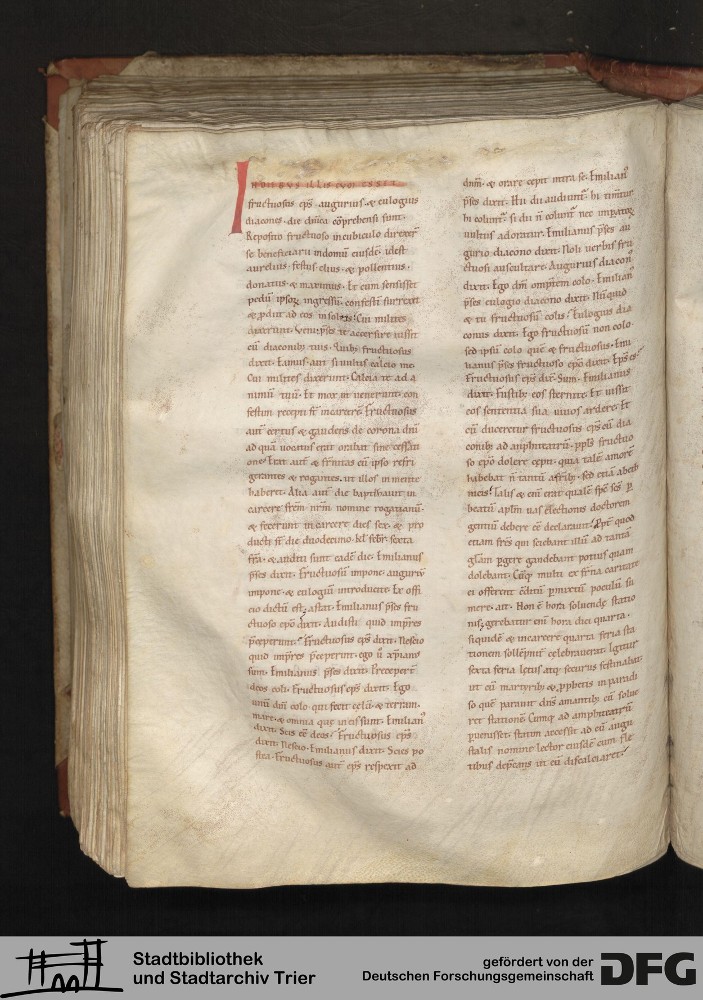 fructuosus eps augurius & eulogius
diacones die dñica cōprehensi sunt
Reposito fructuoso in cubiculo direxer̄
se beneficiarii in domū eiusdē idest
aurelius festus elius & pollentius
donatus & maximus Et cum sensisset
pedū ipsoꝝ ingressū confestī surrexit
& Cui milites
dixerunt Veni p̄ses te accersire iussit
cū diaconibꝫ tuis fructuosus
dixit Eamus aut si uultis calceo me
Cui milites dixerunt Calcia te ad a
nimū tuū Et mox ut uenerunt con
festim recepti st̄ in carcerē Fructuosus
aut̄ certus & gaudens de corona dñi
ad quā uocatus erat orabat sine cessati
one Erat aut̄ & fr̄nitas cū ipso refri
gerantes & rogantes ut illos in mente
haberet Alia aut̄ die baptizauit in
carcere fr̄em nr̄m nomine rogatianū
& fecerunt in carcere dies sex & pro
ducti st̄ die duodecimo kl̄ febr̄ sexta
fr̄a & auditi sunt eadē die Emilianus
p̄ses dixit Fructuosū impone auguriū
impone & eulogiū introducite Ex offi
cio dictū est astant Emilianus p̄ses fru
ctuoso epō dixit Audisti quid imp̄res
p̄ceperunt Fructuosus eps dixit Nescio
quid imp̄res p̄ceperunt ego ū xp̄iano
sum Emilianus p̄ses dixit Preceper̄t
deos coli Fructuosus eps dixit Ego
unū dm̄ colo qui fecit celū & terram
mare & omnia que in eis sunt Emilianꝰ
dixit Scis eē deos Fructuosus eps
dixit Nescio Emilianus dixit Scies po
stea Fructuosus aut̄ eps respexit ad
dnm̄ & orare cepit intra se Emilianꝰ
p̄ses dixit Hii audiunt̄ hi timent̄
hi colunt̄ si dii n̄ colunt̄ nec
uultus adoratur Emilianus p̄ses au
gurio diacono dixit Noli uerbis fru
ctuosi auscultare Augurius diaconꝰ
dixit Ego dm̄ omp̄tem colo Emilianꝰ
p̄ses eulogio diacono dixit Nūquid
& tu fructuosū colis Eulogius dia
conus dixit Ego fructuosū non colo
sed ipsū colo quē & fructuosus Emi
lianus p̄ses fructuoso epo dixit Eps es
Fructuosus eps dix̄ Sum Emilianus
dixit Fustibꝫ eos sternite Et iussit
eos sententia sua uiuos ardere Et
cū duceretur fructuosus eps cū dia
conibꝫ ad amphitatrū ppl̄s fructuo
so epō dolere cepit quia talē amorē
habebat n̄ tantū a fr̄ibꝫ sed etiā ab eth
nicis Talis & eni erat qualē sp̄c sc̄s ꝑ
beatū aplm̄ uas electionis doctorem
gentiū debere eē declarauit quod
etiam fr̄es qui sciebant illū ad tantā
gl̄am ꝑgere gaudebant potius quam
dolebant Cūq multi ex fr̄na caritate
ei offerent cōditū ꝑmixtū poculū su
mere ait Non ē hora soluende statio
nis gerebatur eni hora diei quarta
siquidē & in carcere quarta feria sta
tionem sollēpnit̄ celebrauerat Igitur
sexta feria letus atq securus festinabat
ut cū martyribꝫ & ꝓphetis in paradi
so quē parauit dn̄s amantibꝫ eū solue
ret stationē Cumq ad amphiteatrū
puenisset statim accessit ad eū augu
stalis nomine lector eiusdē cum fle
tibus dep̄cans ut eū discalciaret
Stadtbibliothek
und Stadtarchiv Trier
gefördert von der
Deutschen Forschungsgemeinschaft
DFG